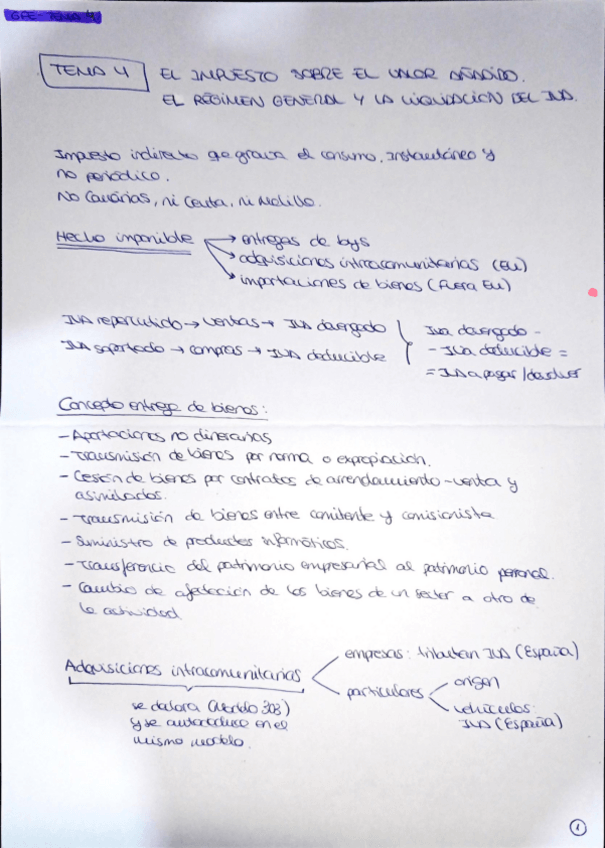 GFE - TEMA 4
TEMA 4 EL IMPUESTO SOBRE EL VALOR AÑADIDO.
EL RÉGIMEN GENERAL Y LA LIQUIDACIÓN DEL IVA.
Impuesto indirecto qe grava el consumo. Instantáneo y
no periódico.
No Canarias, ni Ceuta, ni Melilla.
Hecho imponible → entregas de bys
→ adquisiciones intracomunitarias (EU)
→ importaciones de bienes (Fuera EU)
IVA repercutido → ventas → IVA devengado
IVA soportado → compras → IVA deducible
Iva devengado -
- IVA deducible =
= IVA a pagar/devolver
Concepto entrega de bienes:
- Aportaciones no dinerarias
- Transmisión de bienes por norma o expropiación.
- Cesión de bienes por contratos de arrendamiento-venta y
asimilados.
- Transmisión de bienes entre comitente y comisionista
- Suministro de productos informáticos.
- Transferencia del patrimonio empresarial al patrimonio personal.
- Cambio de afectación de los bienes de un sector a otro de
la actividad
Adquisiciones intracomunitarias
empresas: tributan IVA (España)
particulares
origen
vehículos
IVA (España)
se declara (Modelo 303)
y se autodeduce en el
mismo modelo.
1